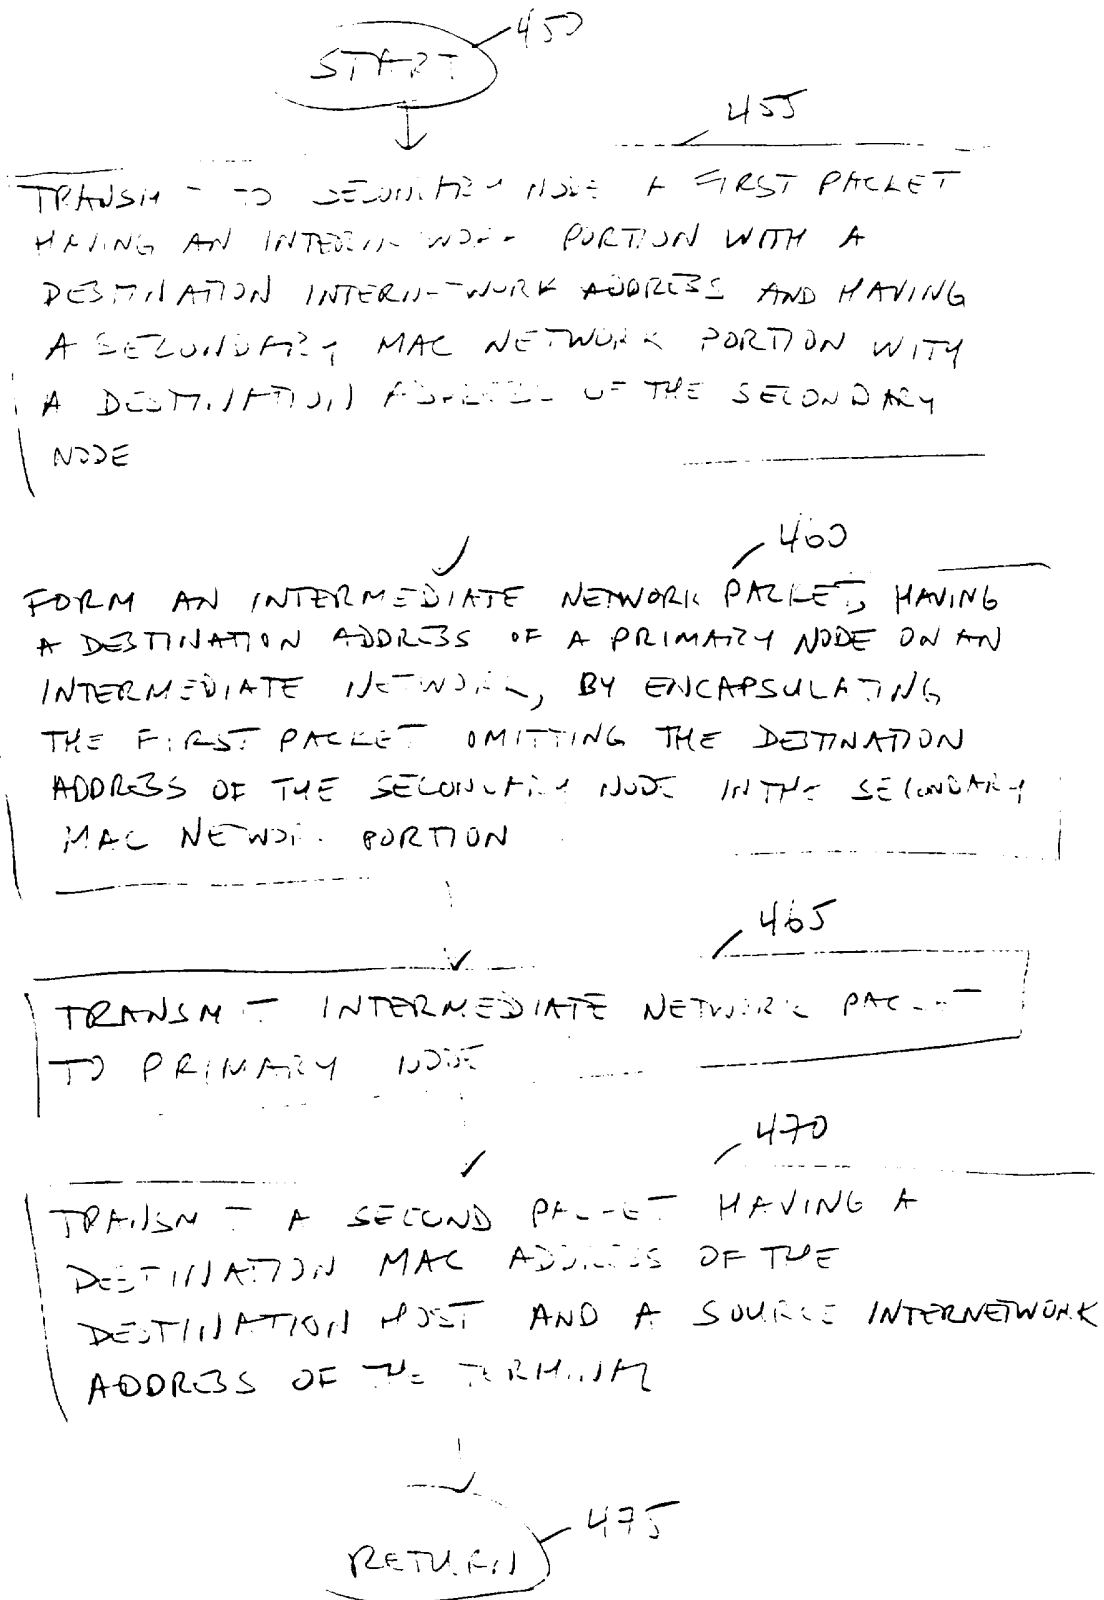 450
START
455
TRANSMIT TO SECONDARY NODE A FIRST PACKET
HAVING AN INTERNETWORK PORTION WITH A
DESTINATION INTERNETWORK ADDRESS AND HAVING
A SECONDARY MAC NETWORK PORTION WITH
A DESTINATION ADDRESS OF THE SECONDARY
NODE
460
FORM AN INTERMEDIATE NETWORK PACKET, HAVING
A DESTINATION ADDRESS OF A PRIMARY NODE ON AN
INTERMEDIATE NETWORK, BY ENCAPSULATING
THE FIRST PACKET OMITTING THE DESTINATION
ADDRESS OF THE SECONDARY NODE IN THE SECONDARY
MAC NETWORK PORTION
465
TRANSMIT INTERMEDIATE NETWORK PACKET
TO PRIMARY NODE
470
TRANSMIT A SECOND PACKET HAVING A
DESTINATION MAC ADDRESS OF THE
DESTINATION HOST AND A SOURCE INTERNETWORK
ADDRESS OF THE TERMINAL
475
RETURN